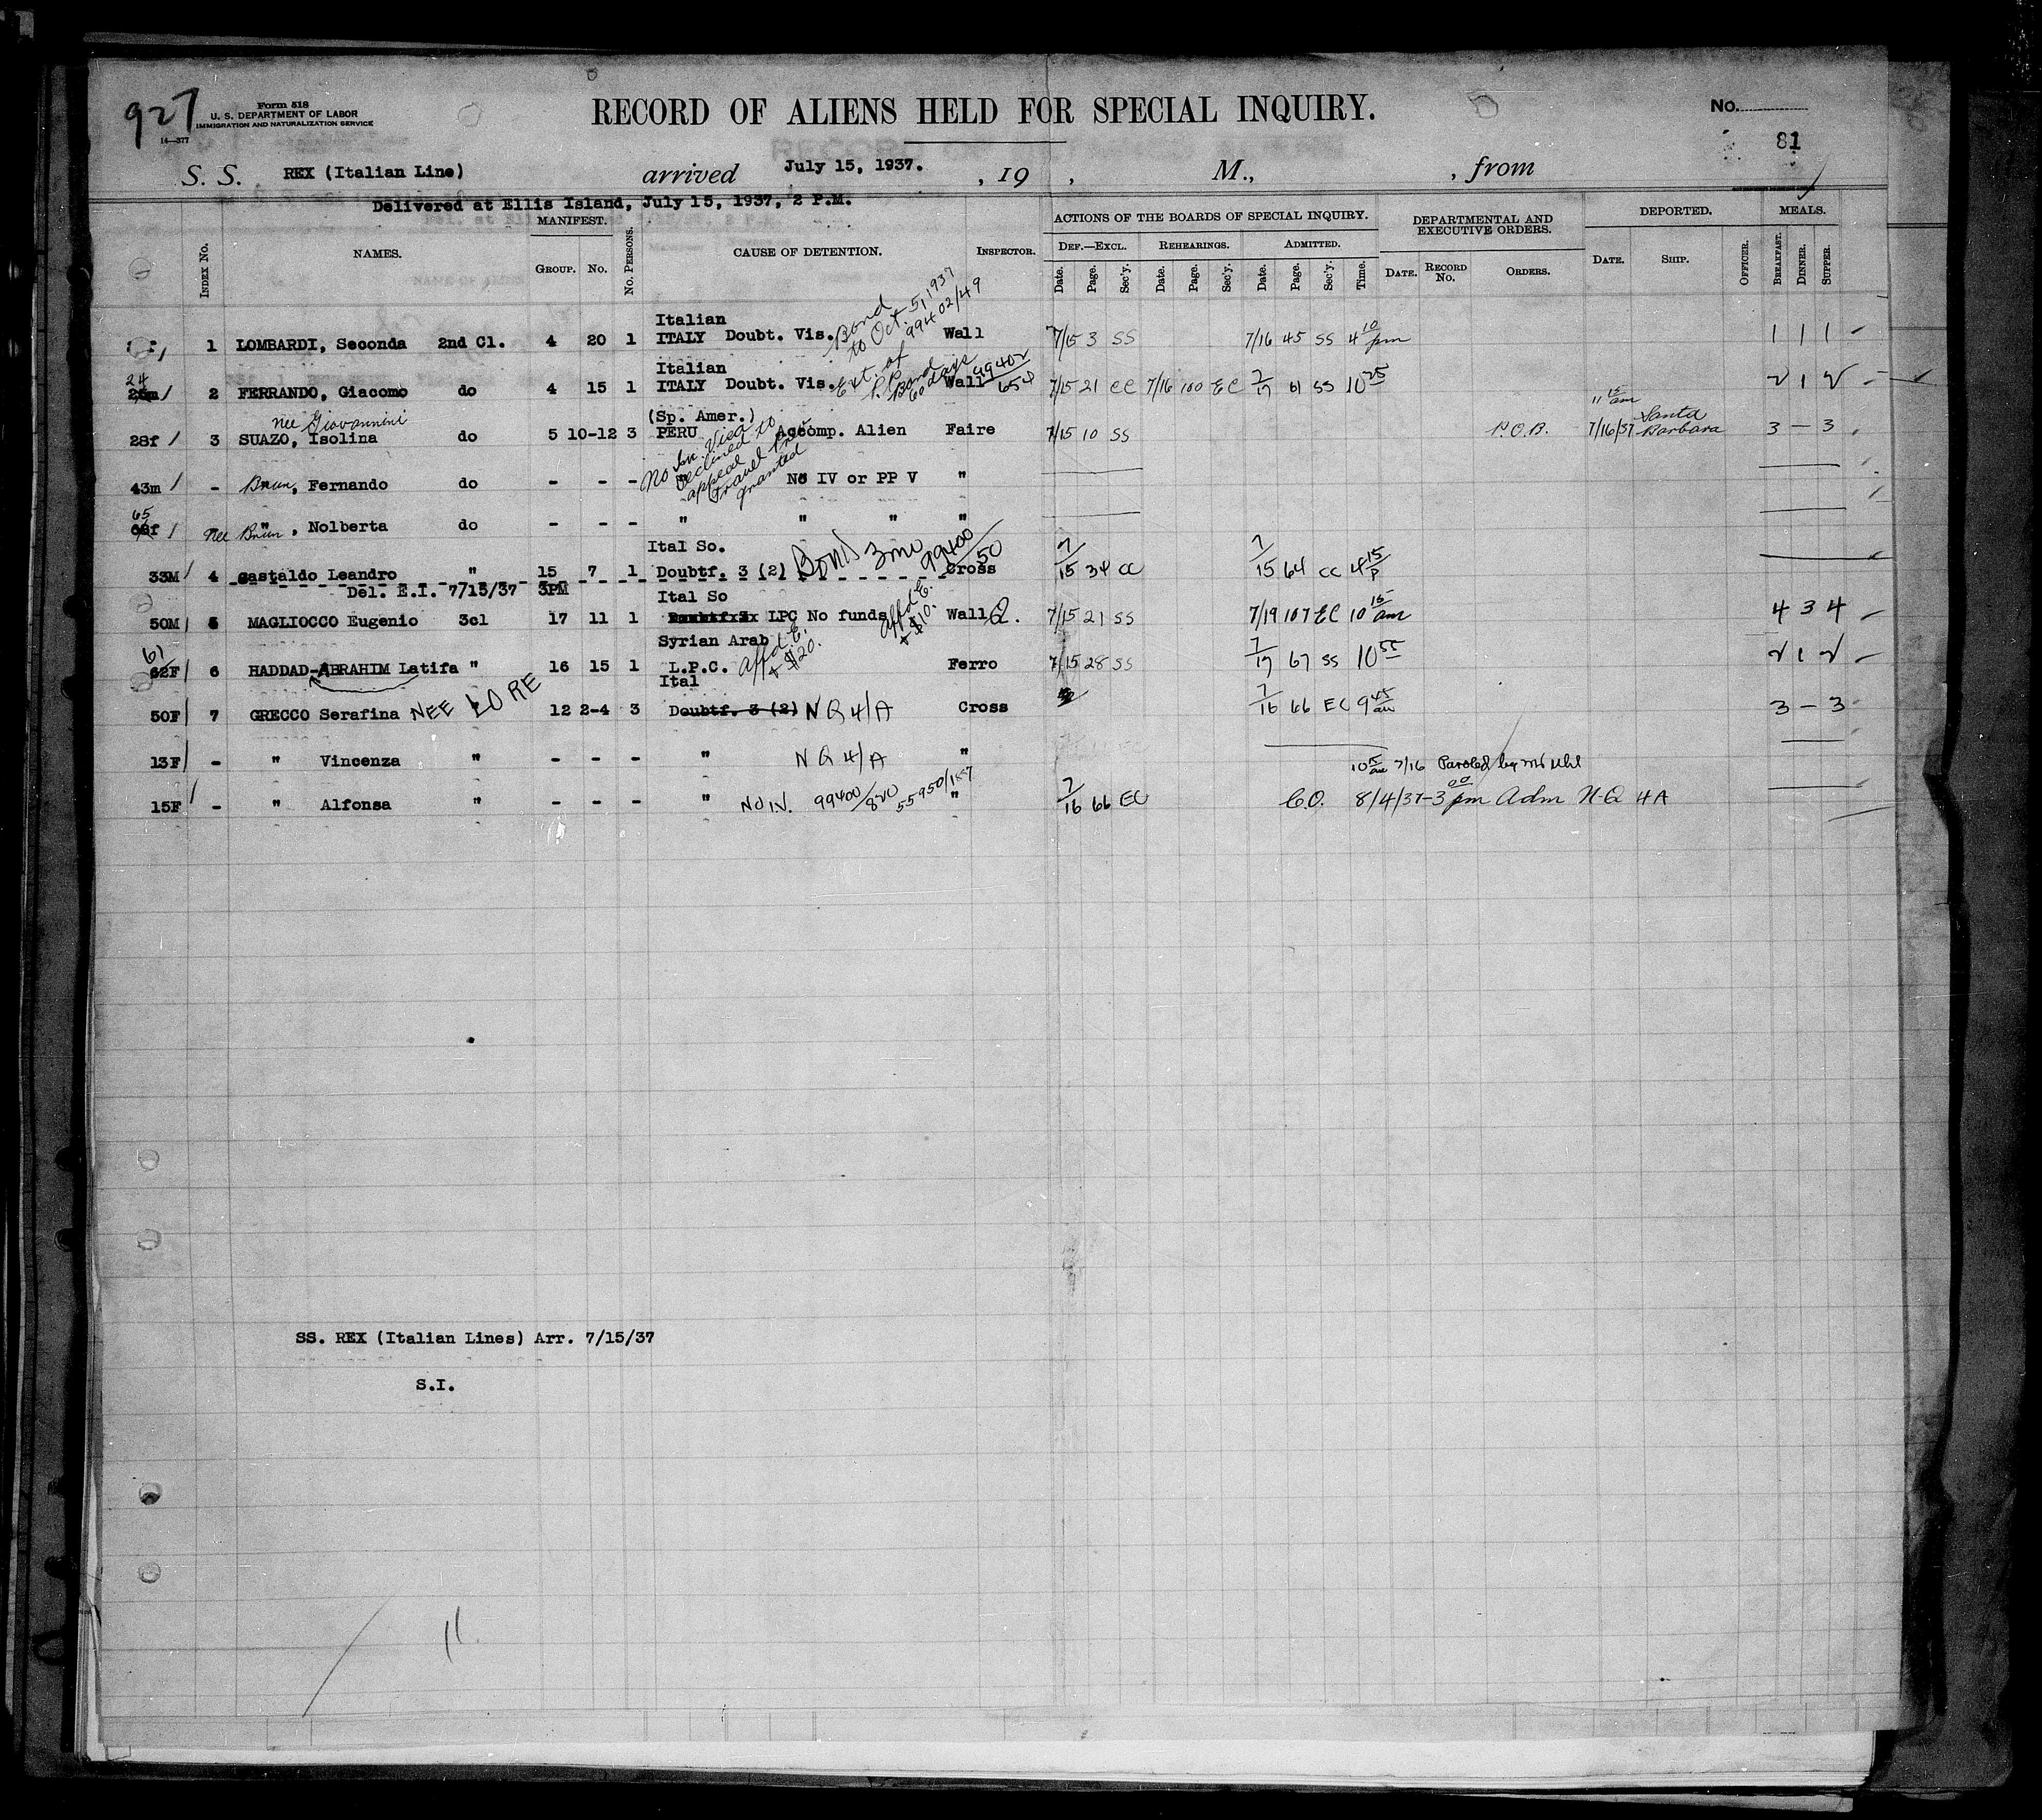 927
Form 518
U. S. DEPARTMENT OF LABOR
IMMIGRATION AND NATURALIZATION SERVICE
14—377
RECORD OF ALIENS HELD FOR SPECIAL INQUIRY.
No.
81
S. S. REX (Italian Line) arrived July 15, 1937. , 19 , M., , from
Delivered at Ellis Island, July 15, 1937, 2 P.M.
INDEX No. NAMES. MANIFEST. GROUP. No. No. PERSONS. CAUSE OF DETENTION. INSPECTOR. ACTIONS OF THE BOARDS OF SPECIAL INQUIRY. DEF.—EXCL. Date. Page. Sec'y. REHEARINGS. Date. Page. Sec'y. ADMITTED. Date. Page. Sec'y. Time. DEPARTMENTAL AND EXECUTIVE ORDERS. DATE. RECORD No. ORDERS. DEPORTED. DATE. SHIP. OFFICER. MEALS. BREAKFAST. DINNER. SUPPER.
Italian Bond to Oct. 5, 1937 99402/49
1 LOMBARDI, Seconda 2nd Cl. 4 20 1 ITALY Doubt. Vis. Wall 7/15 3 SS 7/16 45 SS 4 10 pm 1 1 1
Italian Ext. of P.P. Bond 60 days 99402/654
24 2 FERRANDO, Giacomo do 4 15 1 ITALY Doubt. Vis. Wall 7/15 21 CC 7/16 100 EC 7/17 61 SS 10 25 2 1 2
nee Giovannini (Sp. Amer.) 11 15 am
28f 3 SUAZO, Isolina do 5 10-12 3 PERU Accomp. Alien Faire 7/15 10 SS P.O.B. 7/16/37 Santa Barbara 3 - 3
No Im. Visa declined to appeal travel priv granted
43m - Brun, Fernando do - - - No IV or PP V "
65 nee Brun " , Nolberta do - - - " " " "
Ital So. Bond 3 mo 99400/50
33M 4 Gastaldo Leandro " 15 7 1 Doubtf. 3 (2) Cross 7/15 34 CC 7/15 64 CC 4 15 P
Del. E.I. 7/15/37 3PM
Ital So Affd E. + $10.
50M 5 MAGLIOCCO Eugenio 3cl 17 11 1 LPC No funds Wall Q. 7/15 21 SS 7/19 107 EC 10 15 am 4 3 4
Syrian Arab Affd E. + $20.
61 62F 6 HADDAD-ABRAHIM Latifa " 16 15 1 L.P.C. Ferro 7/15 28 SS 7/17 67 SS 10 55 2 1 2
Ital
50F 7 GRECCO Serafina NEE LORE " 12 2-4 3 Doubtf. 3 (2) NQ 4/A Cross 7/16 66 EC 9 45 am 3 - 3
13F - " Vincenza " - - - " NQ 4/A " 10 15 am 7/16 Paroled by Mr Uhl
15F - " Alfonsa " - - - " NO I.V. 99400/820 55950/187 " 7/16 66 EC C.O. 8/4/37-3 00 pm Adm N-Q 4A
SS. REX (Italian Lines) Arr. 7/15/37
S.I.
11